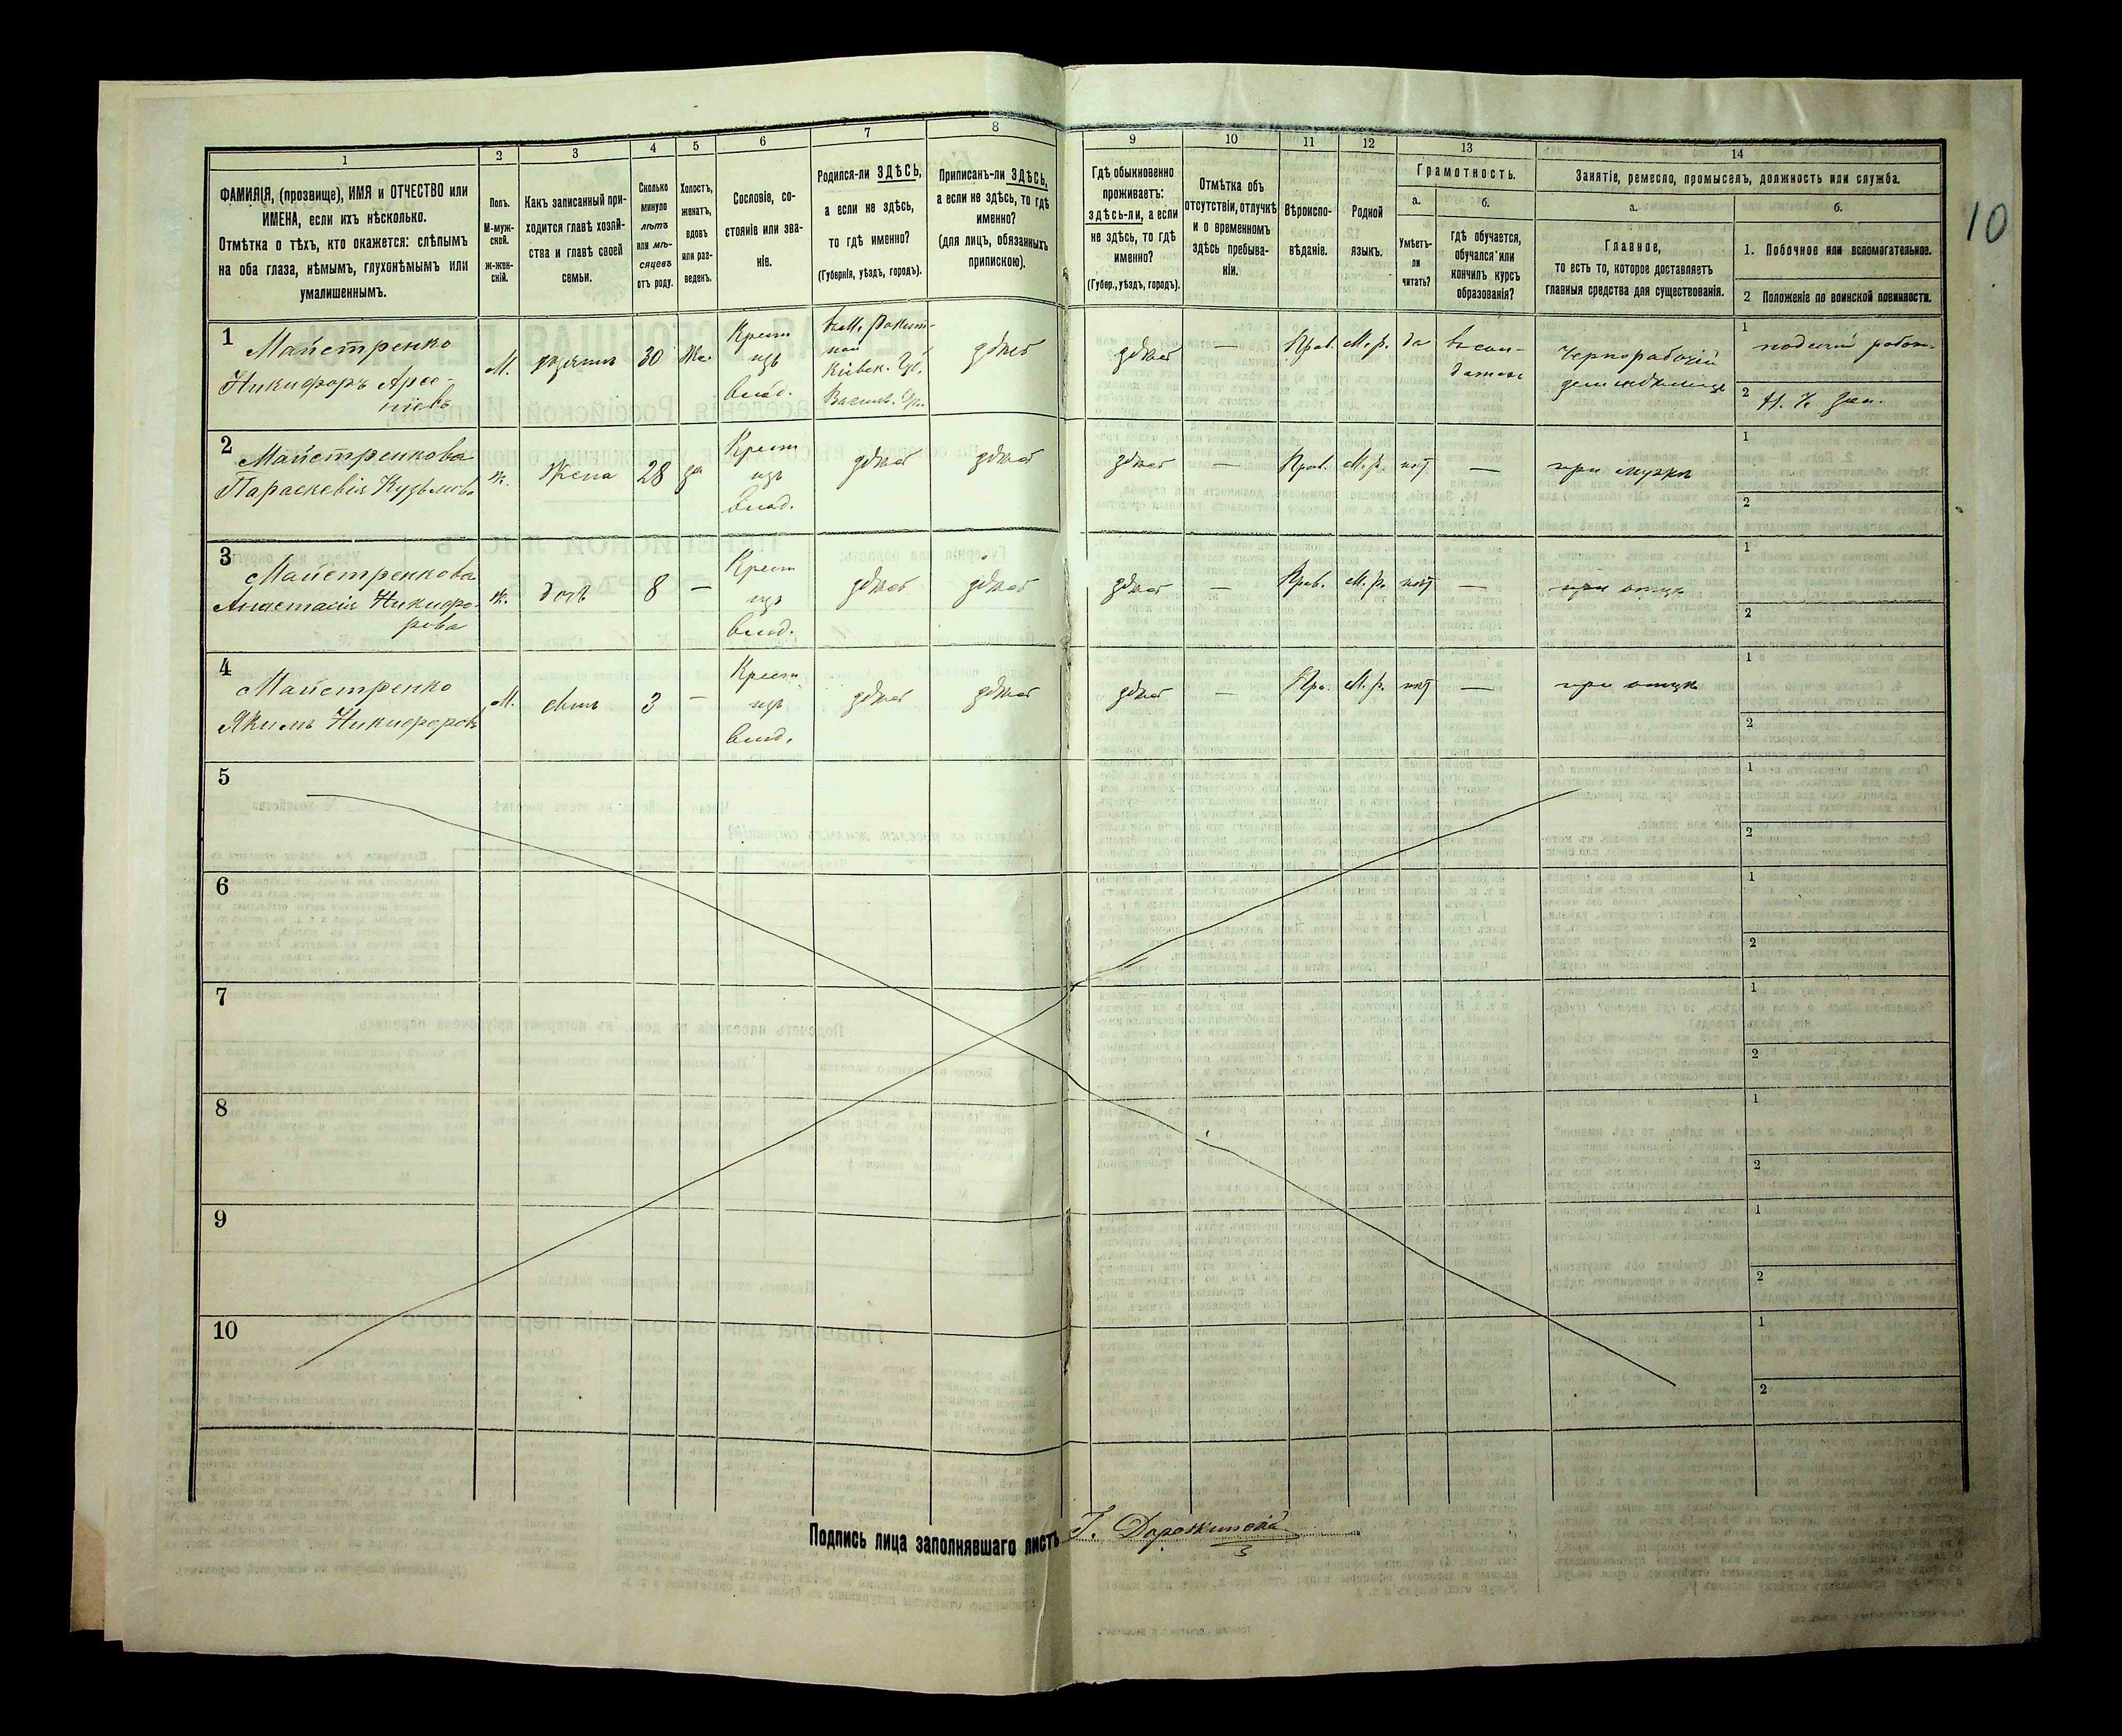 10
1
2
3
4
5
6
7
8
9
10
11
12
13
14
ФАМИЛІЯ, (прозвище), ИМЯ и ОТЧЕСТВО или
ИМЕНА, если ихъ нѣсколько.
Отмѣтка о тѣхъ, кто окажется: слѣпымъ
на оба глаза, нѣмымъ, глухонѣмымъ или
умалишеннымъ.
Полъ.
М-муж-
ской.
Ж-жен-
скій.
Какъ записанный при-
ходится главѣ хозяй-
ства и главѣ своей
семьи.
Сколько
минуло
лѣтъ
или мѣ-
сяцевъ
отъ роду.
Холостъ,
женатъ,
вдовъ
или раз-
веденъ.
Сословіе, со-
стояніе или зва-
ніе.
Родился-ли ЗДѢСЬ,
а если не здѣсь,
то гдѣ именно?
(Губернія, уѣздъ, городъ).
Приписанъ-ли ЗДѢСЬ,
а если не здѣсь, то гдѣ
именно?
(для лицъ, обязанныхъ
припискою).
Гдѣ обыкновенно
проживаетъ:
здѣсь-ли, а если
не здѣсь, то гдѣ
именно?
(Губер., уѣздъ, городъ).
Отмѣтка объ
отсутствіи, отлучкѣ
и о временномъ
здѣсь пребыва-
ніи.
Вѣроиспо-
вѣданіе.
Родной
языкъ.
Грамотность.
а.
Умѣетъ-
ли
читать?
б.
гдѣ обучается,
обучался или
кончилъ курсъ
образованія?
Занятіе, ремесло, промыселъ, должность или служба.
а.
Главное,
то есть то, которое доставляетъ
главныя средства для существованія.
б.
1. Побочное или вспомогательное.
2 Положеніе по воинской повинности.
1
Майстренко
Никифоръ Арсе-
ніевъ
М.
30
Же.
Крест
изъ
влад.
Кіевск. Гу.
Васильк. у.
здѣсь
здѣсь
—
Прав.
М. р.
да
Чернорабочій
1
2
2
Майстренкова
Параскевія Кузьмова
ж.
Жена
28
за
Крест
изъ
влад.
здѣсь
здѣсь
здѣсь
—
Прав.
М. р.
нѣт
—
при мужѣ
1
2
3
Майстренкова
Анастасія Никифо-
рова
ж.
дочь
8
—
Крест
изъ
влад.
здѣсь
здѣсь
здѣсь
—
Прав.
М. р.
нѣт
—
при отцѣ
1
2
4
Майстренко
Якимъ Никифоровъ
М.
сынъ
3
—
Крест
изъ
влад.
здѣсь
здѣсь
здѣсь
—
Пра.
М. р.
нѣт
—
при отцѣ
1
2
5
1
2
6
1
2
7
1
2
8
1
2
9
1
2
10
1
2
Подпись лица заполнявшаго листъ